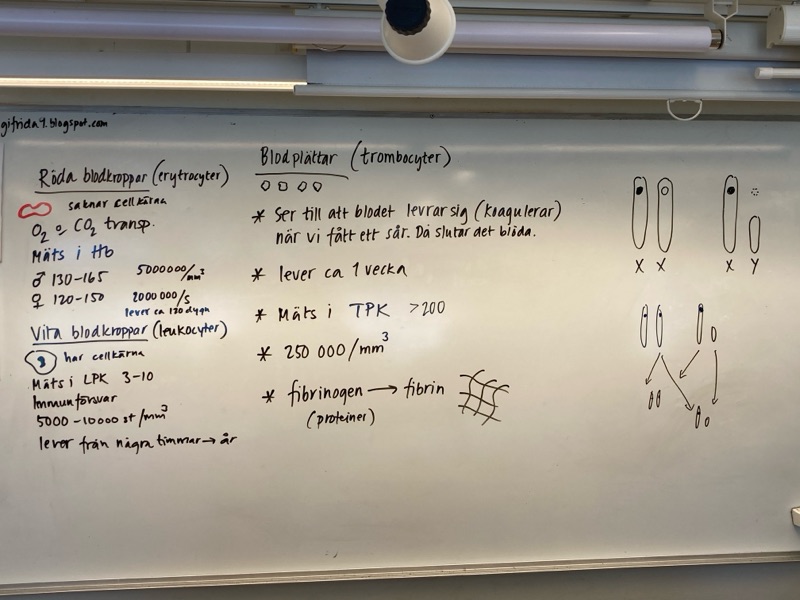 gifrida9.blogspot.com
Röda blodkroppar (erytrocyter)
saknar cellkärna
O2 o CO2 transp.
Mäts i Hb
♂ 130-165 5000000/mm³
♀ 120-150 2000000/s
lever ca 120 dygn
Vita blodkroppar (leukocyter)
har cellkärna
Mäts i LPK 3-10
Immunförsvar
5000-10000 st/mm³
lever från några timmar → år
Blodplättar (trombocyter)
* Ser till att blodet levrar sig (koagulerar)
när vi fått ett sår. Då slutar det blöda.
* lever ca 1 vecka
* Mäts i TPK >200
* 250 000/mm³
* fibrinogen → fibrin
(proteiner)
X X X Y